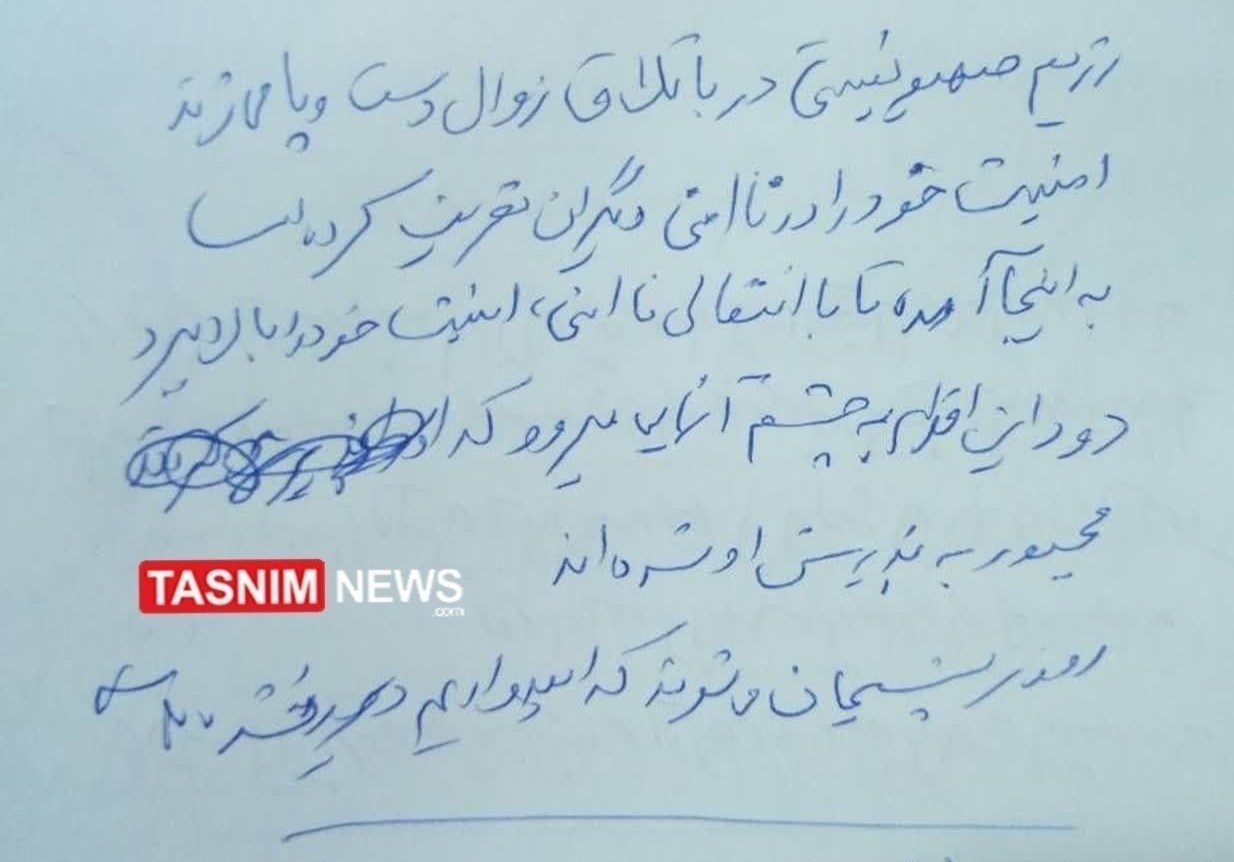 رژیم صهیونیستی در باتلاق زوال دست و پا می‌زند
امنیت خود را در ناامنی دیگران تعریف کرده است
به اینجا آمده تا با انتقال ناامنی، امنیت خود را بالا ببرد
دود این اقدام به چشم آنهایی میرود که
مجبور به پذیرش او شده‌اند
TASNIM NEWS
.com
روزی پشیمان می‌شوند که امیدواریم دیر نشده باشد